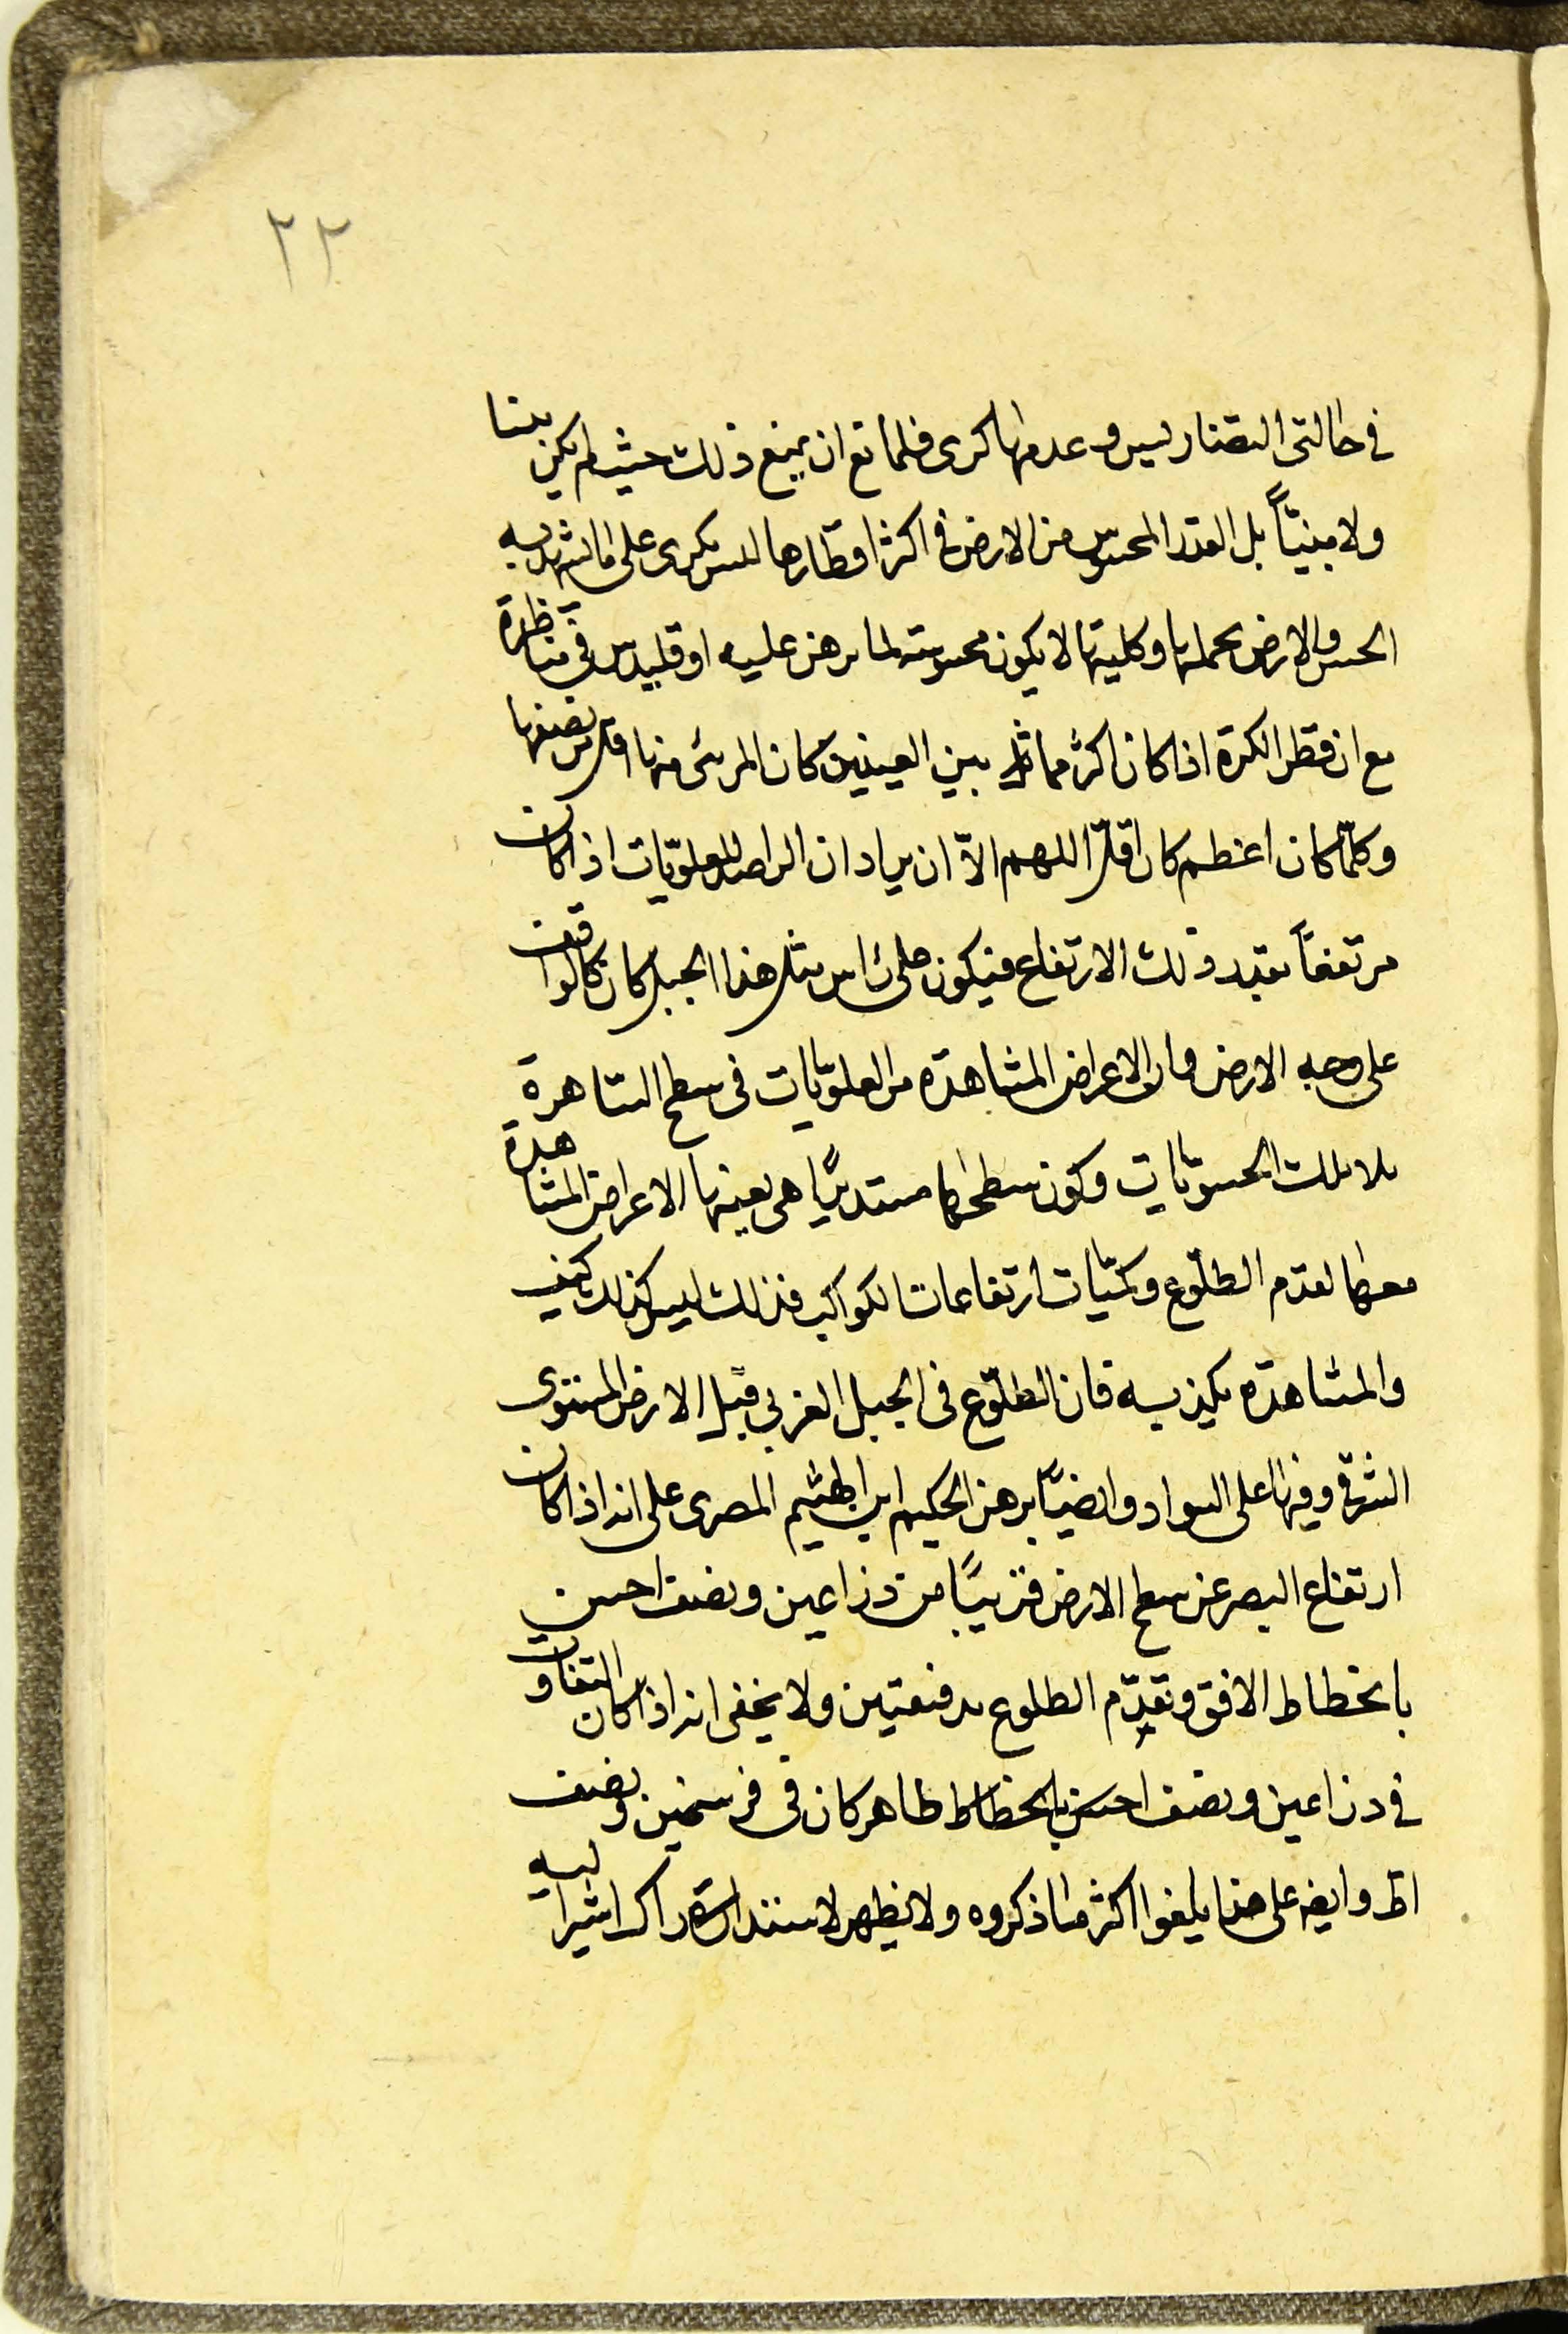 ٢٢
في حالتي التضاريس وعدمها كرى فلمانع ان يمنع ذلك حيث لم يكن بينا
ولا مبنيّاً بل القدر المحسوس من الارض في اكثر اقطارها ليس بكرى على ما يشهد به
الحس والارض بجملتها وكليتها لا يكون محسوسة لما برهن عليه اوقليدس في مناظرة
مع ان قطر الكرة اذا كان اكثر مما بين العينين كان المرئى منها اقل من نصفها
وكلّما كان اعظم كان اقل اللهم الاّ ان يراد ان الراصد للعلويّات اذا كان
مرتفعاً بقدر ذلك الارتفاع فيكون على رأس مثل هذا الجبل كان كالواقف
على وجه الارض وان الاعراض المشاهدة من العلويّات في سطح الساهرة
بلا تلك الحسويّات وكون سطحها مستديراً هى بعينها الاعراض المشاهدة
معها لتقدم الطلوع وكميّات ارتفاعات الكواكب فذلك ليس كذلك كيف
والمشاهدة يكذبه فان الطلوع في الجبل الغربي قبل الارض المستوى
الشرقى وفيها على السواد وايضاً برهن الحكيم ابن الهيثم المصرى على انه اذا كان
ارتفاع البصر عن سطح الارض قريباً من ذراعين ونصف احسن
بانحطاط الافق وتقدّم الطلوع بدقيقتين ولا يخفى انه اذا كان التفاوت
في ذراعين ونصف احسن بانحطاط ظاهر كان في فرسخين ونصف
اظ وايضه على هذا يلغوا اكثر ما ذكروه ولا يظهر لاستدراك اشير اليه